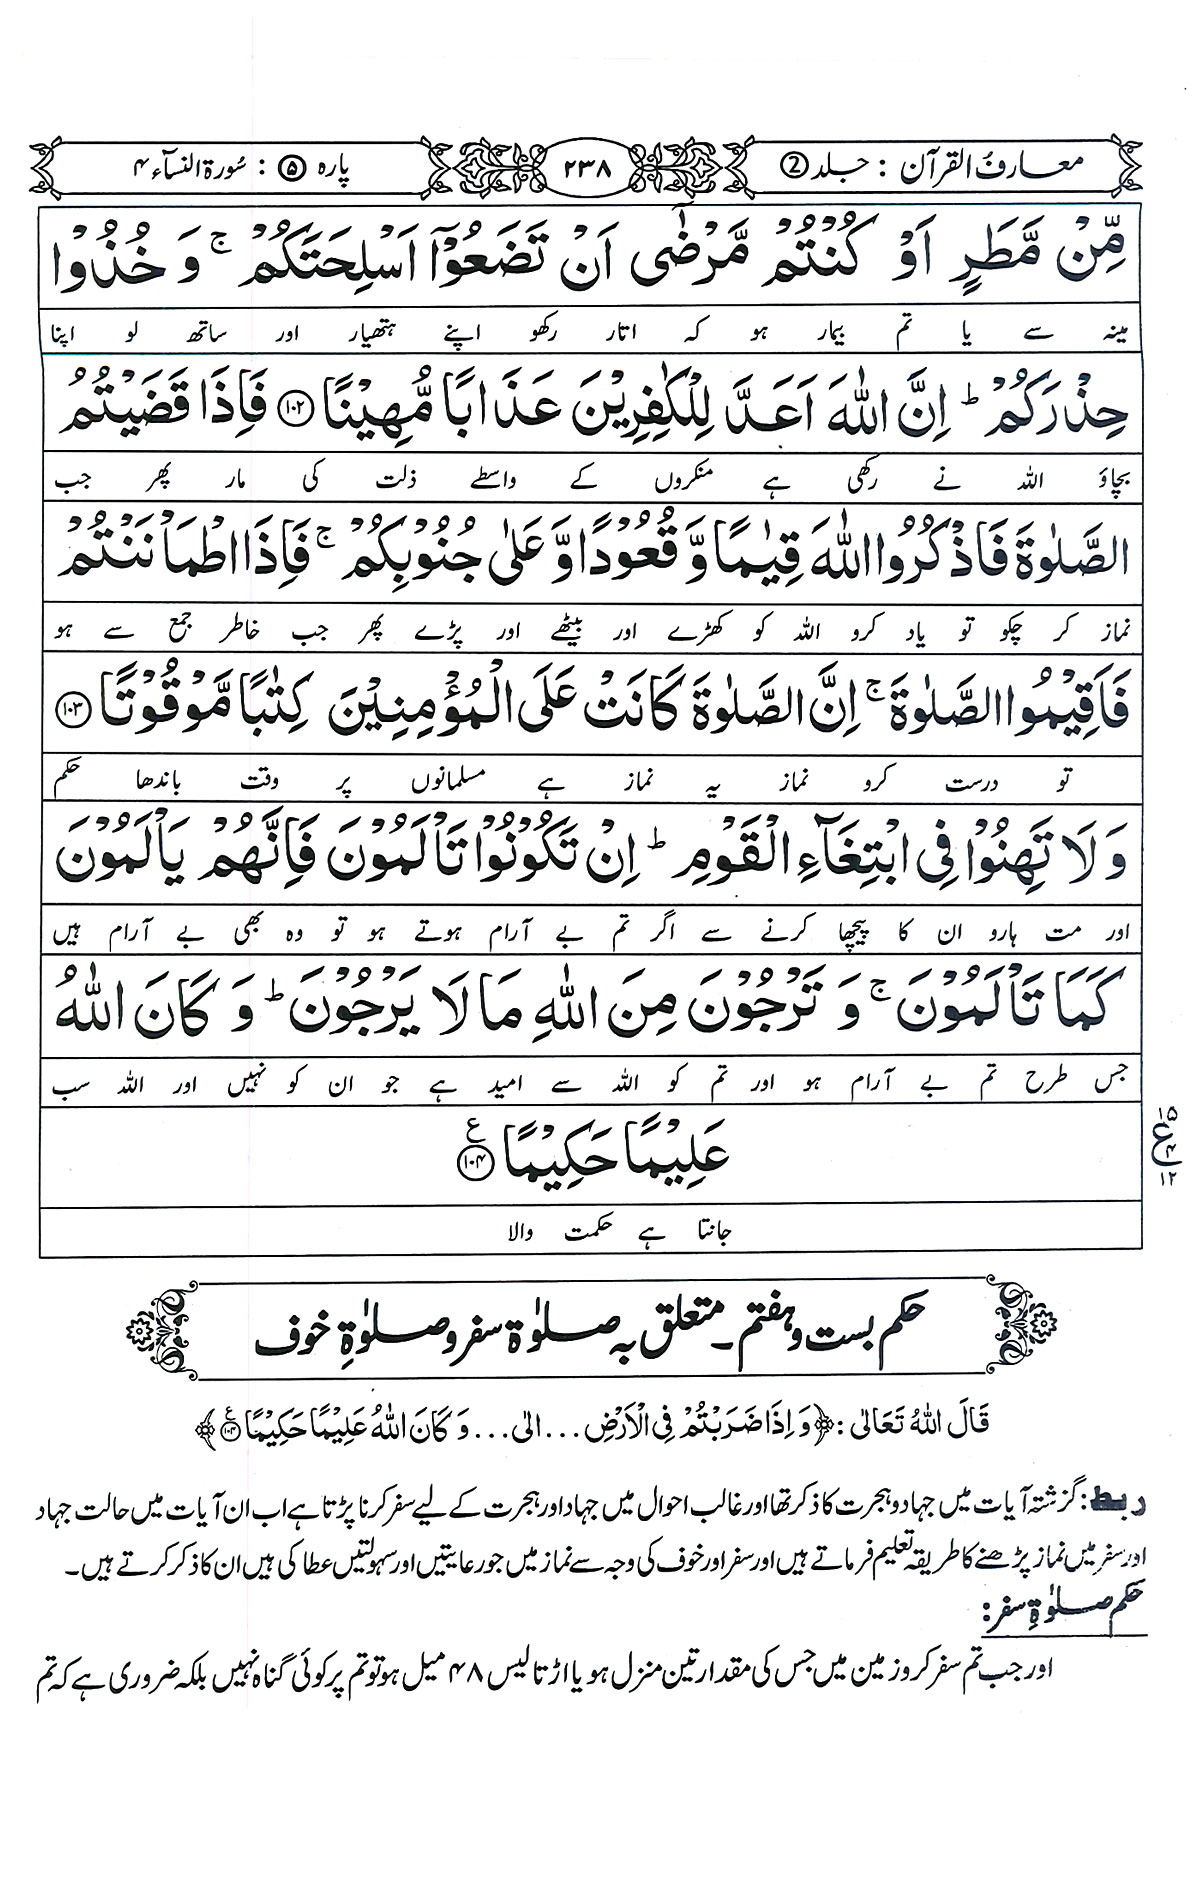 معارف القرآن : جلد ②
۲۳۸
پارہ ⑤ : سُورۃ النسآء ۴
مِّنْ مَّطَرٍ اَوْ كُنْتُمْ مَّرْضٰٓى اَنْ تَضَعُوْٓا اَسْلِحَتَكُمْ ۚ وَ خُذُوْا
مینہ سے یا تم بیمار ہو کہ اتار رکھو اپنے ہتھیار اور ساتھ لو اپنا
حِذْرَكُمْ ؕ اِنَّ اللّٰهَ اَعَدَّ لِلْكٰفِرِيْنَ عَذَابًا مُّهِيْنًا ﴿۱۰۲﴾ فَاِذَا قَضَيْتُمُ
بچاؤ اللہ نے رکھی ہے منکروں کے واسطے ذلت کی مار پھر جب
الصَّلٰوةَ فَاذْكُرُوا اللّٰهَ قِيٰمًا وَّ قُعُوْدًا وَّ عَلٰى جُنُوْبِكُمْ ۚ فَاِذَا اطْمَاْنَنْتُمْ
نماز کر چکو تو یاد کرو اللہ کو کھڑے اور بیٹھے اور پڑے پھر جب خاطر جمع سے ہو
فَاَقِيْمُوا الصَّلٰوةَ ۚ اِنَّ الصَّلٰوةَ كَانَتْ عَلَى الْمُؤْمِنِيْنَ كِتٰبًا مَّوْقُوْتًا ﴿۱۰۳﴾
تو درست کرو نماز یہ نماز ہے مسلمانوں پر وقت باندھا حکم
وَلَا تَهِنُوْا فِى ابْتِغَآءِ الْقَوْمِ ؕ اِنْ تَكُوْنُوْا تَاْلَمُوْنَ فَاِنَّهُمْ يَاْلَمُوْنَ
اور مت ہارو ان کا پیچھا کرنے سے اگر تم بے آرام ہوتے ہو تو وہ بھی بے آرام ہیں
كَمَا تَاْلَمُوْنَ ۚ وَ تَرْجُوْنَ مِنَ اللّٰهِ مَا لَا يَرْجُوْنَ ؕ وَ كَانَ اللّٰهُ
جس طرح تم بے آرام ہو اور تم کو اللہ سے امید ہے جو ان کو نہیں اور اللہ سب
عَلِيْمًا حَكِيْمًا ﴿۱۰۴﴾ ع
۱۵
ع ۴
۱۲
جانتا ہے حکمت والا
حکم بست و ہفتم ۔ متعلق بہ صلوٰۃ سفر و صلوٰۃِ خوف
قَالَ اللّٰهُ تَعَالٰى : ﴿وَاِذَا ضَرَبْتُمْ فِى الْاَرْضِ ... الٰى ... وَ كَانَ اللّٰهُ عَلِيْمًا حَكِيْمًا ۱۰۴ ع﴾
ربط: گزشتہ آیات میں جہاد و ہجرت کا ذکر تھا اور غالب احوال میں جہاد اور ہجرت کے لیے سفر کرنا پڑتا ہے اب ان آیات میں حالت جہاد
اور سفر میں نماز پڑھنے کا طریقہ تعلیم فرماتے ہیں اور سفر اور خوف کی وجہ سے نماز میں جو رعایتیں اور سہولتیں عطا کی ہیں ان کا ذکر کرتے ہیں۔
حکم صلوٰۃِ سفر:
اور جب تم سفر کرو زمین میں جس کی مقدار تین منزل ہو یا اڑتالیس ۴۸ میل ہو تو تم پر کوئی گناہ نہیں بلکہ ضروری ہے کہ تم